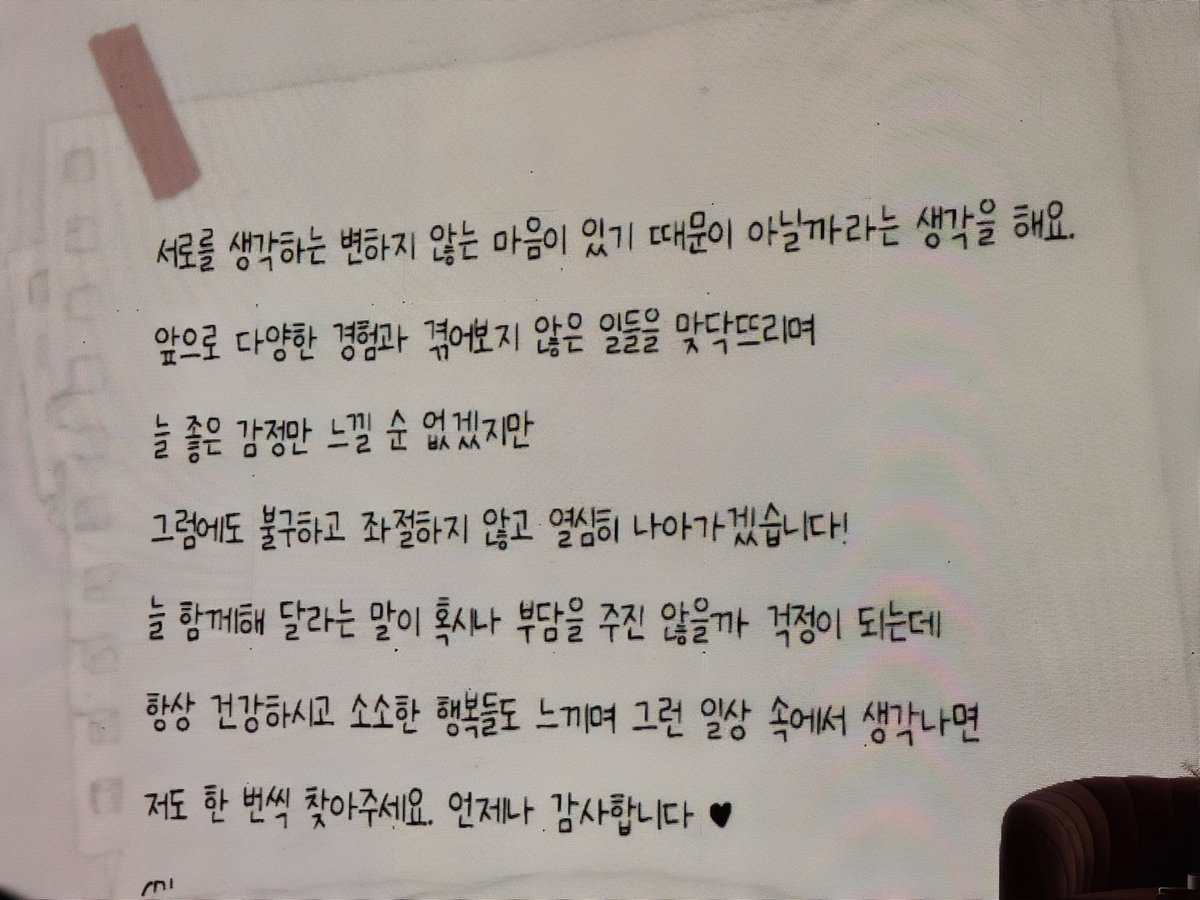 서로를 생각하는 변하지 않는 마음이 있기 때문이 아닐까라는 생각을 해요.
앞으로 다양한 경험과 겪어보지 않은 일들을 맞닥뜨리며
늘 좋은 감정만 느낄 순 없겠지만
그럼에도 불구하고 좌절하지 않고 열심히 나아가겠습니다!
늘 함께해 달라는 말이 혹시나 부담을 주진 않을까 걱정이 되는데
항상 건강하시고 소소한 행복들도 느끼며 그런 일상 속에서 생각나면
저도 한 번씩 찾아주세요. 언제나 감사합니다 ♥